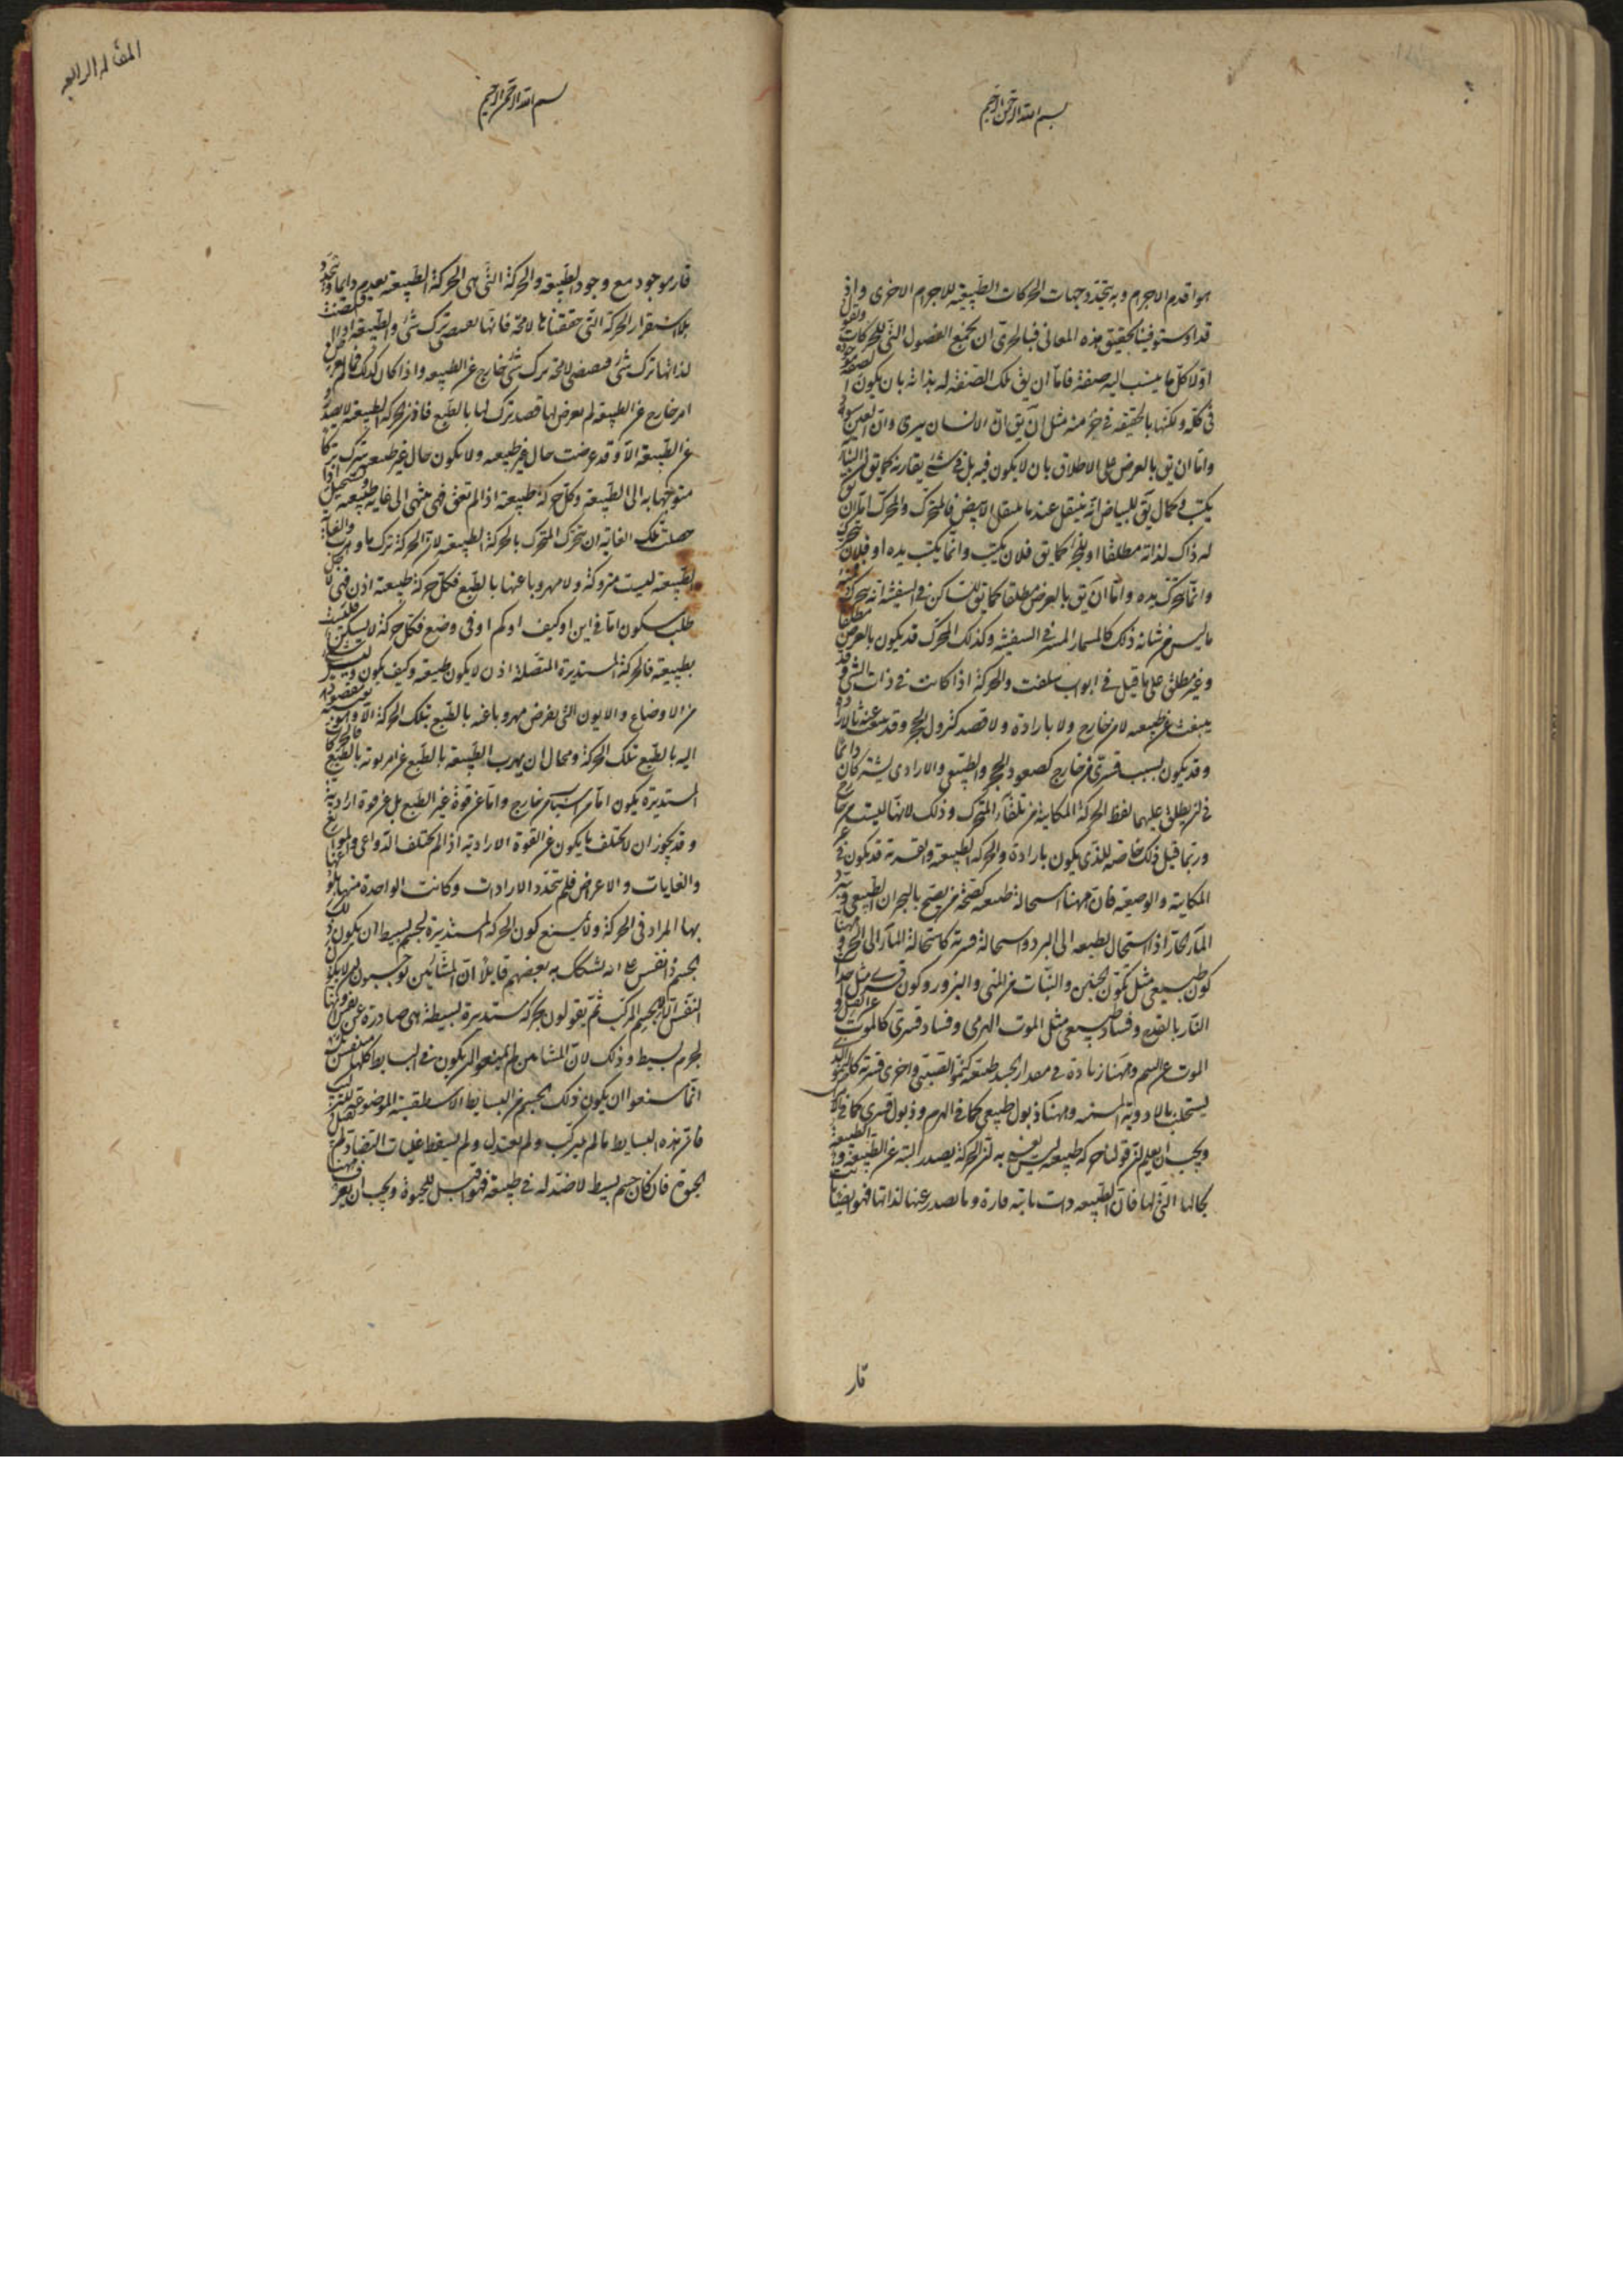 بسم الله الرحمن الرحيم
هو اقدم الاجرام و به يتحدد جهات الحركات الطبيعية للاجرام الاخرى و اذ
قد استوفينا تحقيق هذه المعانى فبالحرى ان نجمع الفصول التى للحركات و نقول
اولا كل ما ينسب اليه صفة فاما ان يق تلك الصفة له بذاته بان يكون
فى كله ولكنها بالحقيقة فى جزء منه مثل ان يق ان الانسان يرى و ان العين
و اما ان يق بالعرض على الاطلاق بان لا يكون فيه بل فى شئ يقارنه كما يق ان البناء
يكتب و كما يق للبياض انه ينتقل عندما ينتقل الابيض فالمتحرك و المحرك اما ان
له ذاك لذاته مطلقا او للجزء كما يق فلان يكتب و انما يكتب يده او فلان يتحرك
و انما يتحرك يده و اما ان يق بالعرض مطلقا كما يق للساكن فى السفينة انه يتحرك
ما ليس من شانه ذلك كالمسمار المسمر فى السفينة و كذلك المحرك قد يكون بالعرض مطلقا
و غير مطلق على ما قيل فى ابواب سلفت و الحركة اذا كانت فى ذات الشئ فقد
ينبعث عن طبيعة لا من خارج و لا بارادة و لا قصد كنزول الحجر و قد ينبعث عنه بالارادة
و قد يكون بسبب قسرى من خارج كصعود الحجر و الطبيعى و الارادى يشتركان
فى ان يطلق عليهما لفظ الحركة الكاينة من تلقاء المتحرك و ذلك لانها ليست من خارج
و ربما قيل ذلك خاصة للذى يكون بارادة و الحركة الطبيعية و القسرية قد يكون فى غير
المكانية و الوضعية فان ههنا استحالة طبيعية كصحة من يصح بالبحران الطبيعى و تبرد
الماء الحار اذا استحال بطبيعه الى البرد و استحالة قسرية كاستحالة الماء الى الحر و ههنا
كون طبيعى مثل تكون الجنين و النبات من المنى و البزور و كون قسرى مثل احداث
النار بالقدح و فساد طبيعى مثل الموت الهرمى و فساد قسرى كالموت عن القتل و
الموت عن السم و ههنا زيادة فى مقدار الجسد طبيعية كنمو الصبى و اخرى قسرية كالنمو الذى
يستجلب بالادوية المسمنة و ههنا ذبول طبيعى كما فى الهرم و ذبول قسرى كما فى
و يجب ان يعلم ان قولنا حركة طبيعية ليس نعنى به ان الحركة يصدر البتة عن الطبيعة و الطبيعة
بحالها التى لها فان الطبيعة ذات ثابتة قارة و ما يصدر عنها لذاتها فهو ايضا ثابت
قار
المقالة الرابعة
بسم الله الرحمن الرحيم
قار موجود مع وجود الطبيعة و الحركة التى هى الحركة الطبيعية يعدم دائما و يتجدد
بلا استقرار و الحركة التى حققناها لا محة فانها يقتضى ترك شئ و الطبيعة اذا اقتضت
لذاتها ترك شئ فيقتضى لا محة ترك شئ خارج عن الطبيعة و اذا كان كذلك فما لم يعرض
امر خارج عن الطبيعة لم يعرض لها قصد ترك لها بالطبع فاذن الحركة الطبيعية لا يصدر
عن الطبيعة الا و قد عرضت حال غير طبيعية و لا يكون حال غير طبيعية يترك تركا
متوجها به الى الطبيعة و كل حركة طبيعية اذا لم تعق فهى ينتهى الى غاية طبيعية و يستحيل اذا
حصلت تلك الغاية ان يتحرك المتحرك بالحركة الطبيعية لان الحركة ترك ما و هرب و الغاية
الطبيعية ليست متروكة و لا مهروبا عنها بالطبع فكل حركة طبيعية اذن فهى لاجل
طلب سكون اما فى اين او كيف او كم او فى وضع فكل حركة لا يسكن فليست
بطبيعية فالحركة المستديرة المتصلة اذن لا يكون طبيعية و كيف يكون و ليس
من الاوضاع و الايون التى يفرض مهروبا عنه بالطبع بتلك الحركة الا و هو بعينه مقصود
اليه بالطبع بتلك الحركة و محال ان يهرب الطبيعة بالطبع عن امر يؤته بالطبع فالحركات
المستديرة يكون اما من اسباب من خارج و اما عن قوة غير الطبع بل عن قوة ارادية
و قد يجوز ان لا يختلف ما يكون عن القوة الارادية اذا لم يختلف الدواعى و الموانع
و الغايات و الاغراض فلم يتجدد الارادات و كانت الواحدة منها
بها المراد فى الحركة و لا يمنع كون الحركة المستديرة لجسم بسيط ان يكون ذلك
الجسم ذا نفس على انه يشكك به بعضهم قائلا ان المشائين يوجبون ان لا يكون
النفس الا للجسم المركب ثم يقولون بحركة مستديرة بسيطة هى صادرة عن نفس
لجرم بسيط و ذلك لان المشائين لم يمنعوا ان يكون فى البسايط كلها متنفس
انما منعوا ان يكون ذلك الجسم من البسايط الاسطقسية الموضوعة للتركيب
فان هذه البسايط ما لم يتركب و لم يعتدل و لم يسقط غلبات التضاد لم يقبل
الحيوة فان كان جسم بسيط لا ضد له فى طبيعته فهو اقبل للحيوة و يجب ان يعرف ههنا